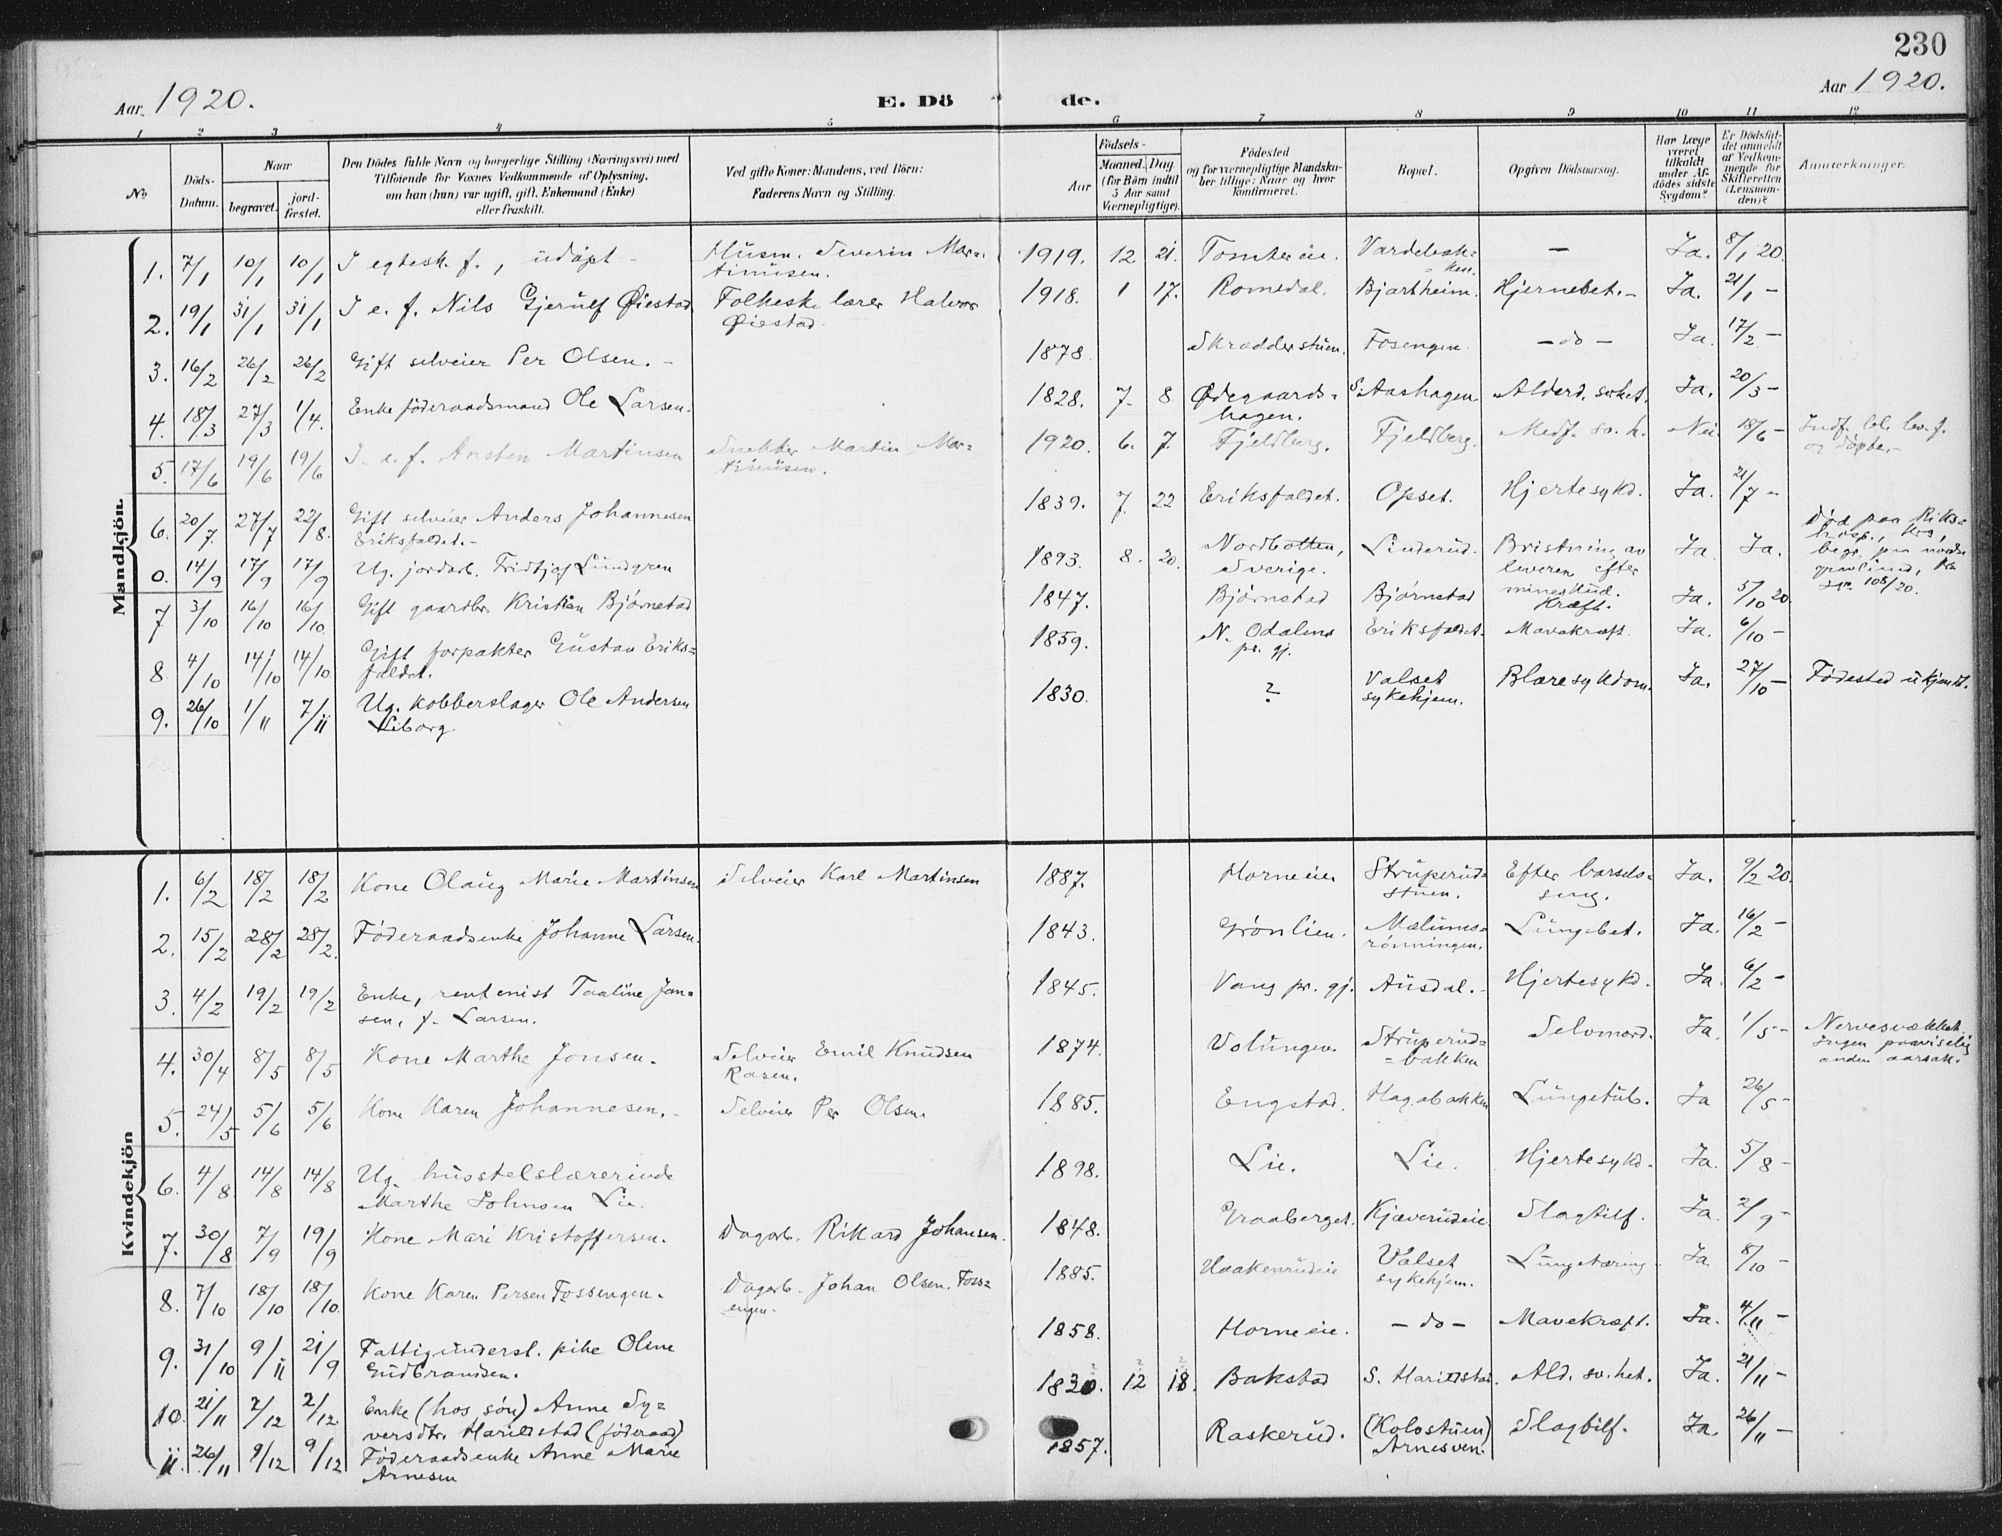 230
Aar 1920.
E. Dö de.
Aar 1920.
1 2 3 4 5 6 7 8 9 10 11 12
No
Döds-
Datum.
Naar
begravet.
jord-
fæstet.
Den Dödes fulde Navn og borgerlige Stilling (Næringsvei) med
Tilföiende for Voxnes Vedkommende af Oplysning,
om han (hun) var ugift, gift, Enkemand (Enke)
eller fraskilt.
Ved gifte Koner: Mandens, ved Börn:
Faderens Navn og Stilling.
Födsels-
Aar
Maaned. Dag
(for Börn indtil
5 Aar samt
Værnepligtige).
Födested
og for værnepligtige Mandska-
ber tillige: Naar og hvor
konfirmeret.
Bopæl.
Opgiven Dödsaarsag.
Har Læge
været
tilkaldt
under Af-
dödes sidste
Sygdom?
Er Dödsfal-
det anmeldt
af Vedkom-
mende for
Skifteretten
(Lensman-
den)?
Anmærkninger.
Mandkjön.
1. 7/1 10/1 10/1 I egtesk. f., udøpt - Husm. Severin Mar-
tinusen. 1919. 12 21. Tomter eie. Vardebak-
ken. — Ja. 8/1 20.
2. 19/1 31/1 31/1 I e. f. Nils Gjerulf Øiestad Folkesk. lærer Halvor
Øiestad. 1918. 1 17. Romedal. Bjartheim. Hjernebet. - Ja. 21/1 -
3. 16/2 26/2 26/2 Gift selveier Per Olsen. - 1878. Skrædderstuen. Fosengen. - do - Ja. 17/2 -
4. 18/3 27/3 1/4. Enke føderaadsmand Ole Larsen. 1828. 7. 8 Ødegaards-
hagen. S. Aashagen. Alderd. svket. Ja. 20/3 -
5. 17/6 19/6 19/6 I. e. f. Ansten Martinsen Snekker Martin Mar-
tinusen. 1920. 6. 7. Fjeldberg. Fjeldberg. Medf. sv. h. Nei. 18/6 - Indf. bl. lev. f.
og døpte. -
6. 20/7 27/7 22/8. Gift selveier Anders Johannesen
Eriksfaldet. - 1839. 7. 22 Eriksfaldet. Opset. Hjertesykd. Ja. 21/7 -
0. 14/9 17/9 17/9 Ug. jordarb. Fridtjof Lundgren 1893. 8. 20. Nordbotten,
Sverige. Linderud. Bristning av
leveren efter
mineskud. Ja. Ja. Død paa Riks-
hosp., Kra,
begr. paa nordre
gravlund,
108/20.
7 3/10 16/10 16/10 Gift gaardbr. Kristian Bjørnstad 1847. Bjørnstad Bjørnstad Kræft. Ja. 5/10 20.
8 4/10 14/10 14/10 Gift forpakter Gustav Eriks-
faldet. 1859. N. Odalens
pr. gj. Eriksfaldet. Mavekræft. Ja. 6/10 -
9. 26/10 1/11 7/11 Ug. kobberslager Ole Andersen
Liborg. 1830. ? Valset
sykehjem. Blæresykdom. Ja. 27/10 - Fødested ukjendt.
Kvindekjön
1. 6/2 18/2 18/2 Kone Olaug Marie Martinsen Selveier Karl Martinsen 1887. Horneeie Struperud-
stuen. Efter barsels-
seng. Ja. 9/2 20.
2. 15/2 28/2 28/2. Føderaadsenke Johanne Larsen. 1843. Grønlien. Mælums-
rønningen. Lungebet. Ja. 16/2 -
3. 4/2 19/2 19/2 Enke, rentenist Taaline Jan-
sen, f. Larsen. 1845. Vang pr. gj. Ausdal. - Hjertesykd. Ja. 6/2 -
4. 30/4 8/5 8/5 Kone Marthe Jonsen. Selveier Emil Knudsen
Rasen. 1874. Volungen. Struperud-
- bakken Selvmord. Ja. 1/5 - Nervesvækket.
Ingen paaviselig
anden aarsak.
5. 24/5 5/6 5/6 Kone Karen Johannesen. - Selveier Per Olsen 1885. Engstad. Hagabakken Lungetub. Ja 26/5 -
6. 4/8 14/8 14/8 Ug. husstelslærerinde
Marthe Johnsen Lie. 1898. Lie. Lie. Hjertesykd. Ja. 5/8 -
7. 30/8 7/9 19/9 Kone Mari Kristoffersen. Dagarb. Rikard Johansen. 1848. Graaberget. Kjæverudeie. Slagtilf. Ja. 2/9 -
8. 7/10 18/10 18/10. Kone Karen Persen Fossengen. Dagarb. Johan Olsen Foss-
engen. 1885. Haakenrudeie Valset
sykehjem. Lungetæring. Ja. 8/10 -
9. 31/10 9/11 21/9 Fattigunderst. pike Oline
Gudbrandsen. 1858. Horneeie. - do - Mavekræft. Ja. 4/11 -
10. 21/11 2/12 2/12 Enke (hos søn) Anne Sy-
versdtr. Harildstad (føderaad) 1830. 12 18. Bakstad S. Harildstad. Ald. sv.het. Ja. 21/11 -
11. 26/11 9/12 9/12 Føderaadsenke Anne Marie
Arnesen 1857. Raskerud. (Kolostuen)
Arnesven. Slagtilf. Ja. 26/11 -